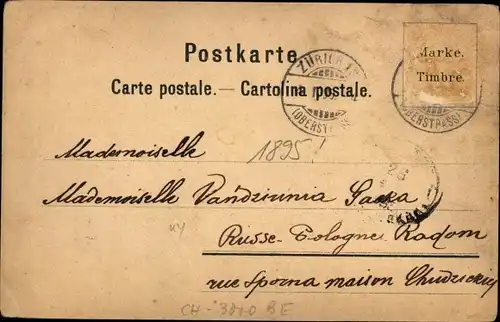 Postkarte
Carte postale. — Cartolina postale.
Marke.
Timbre.
ZÜRICH
(OBERSTR
(OBERSTRASS)
1895!
Mademoiselle
Mademoiselle Vandziunia
Russe-Pologne Radom
rue Sporna maison
CH-3800 BE